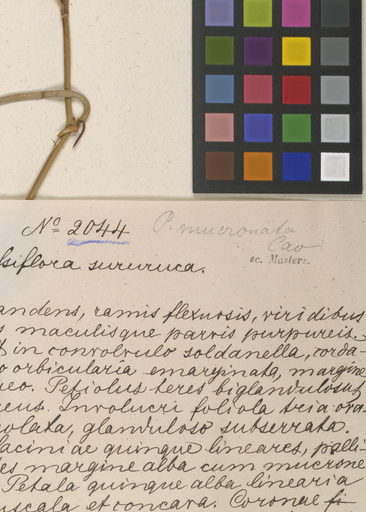 Nº 2044
P. mucronata
Cav
sc. Masters.
siflora sururuca.
andens, ramis flexuosis, viridibus
s maculisque parvis purpureis.
in convolvulo soldanella, corda-
o orbicularia emarginata, margine
eo. Petiolus teres biglandulosus
ceus. Involucri foliola tria ova
olata, glanduloso subserrata.
laciniae quinque lineares, palli-
es margine alba cum mucrone
Petala quinque alba linearia
uscala et concava. Coronae fi